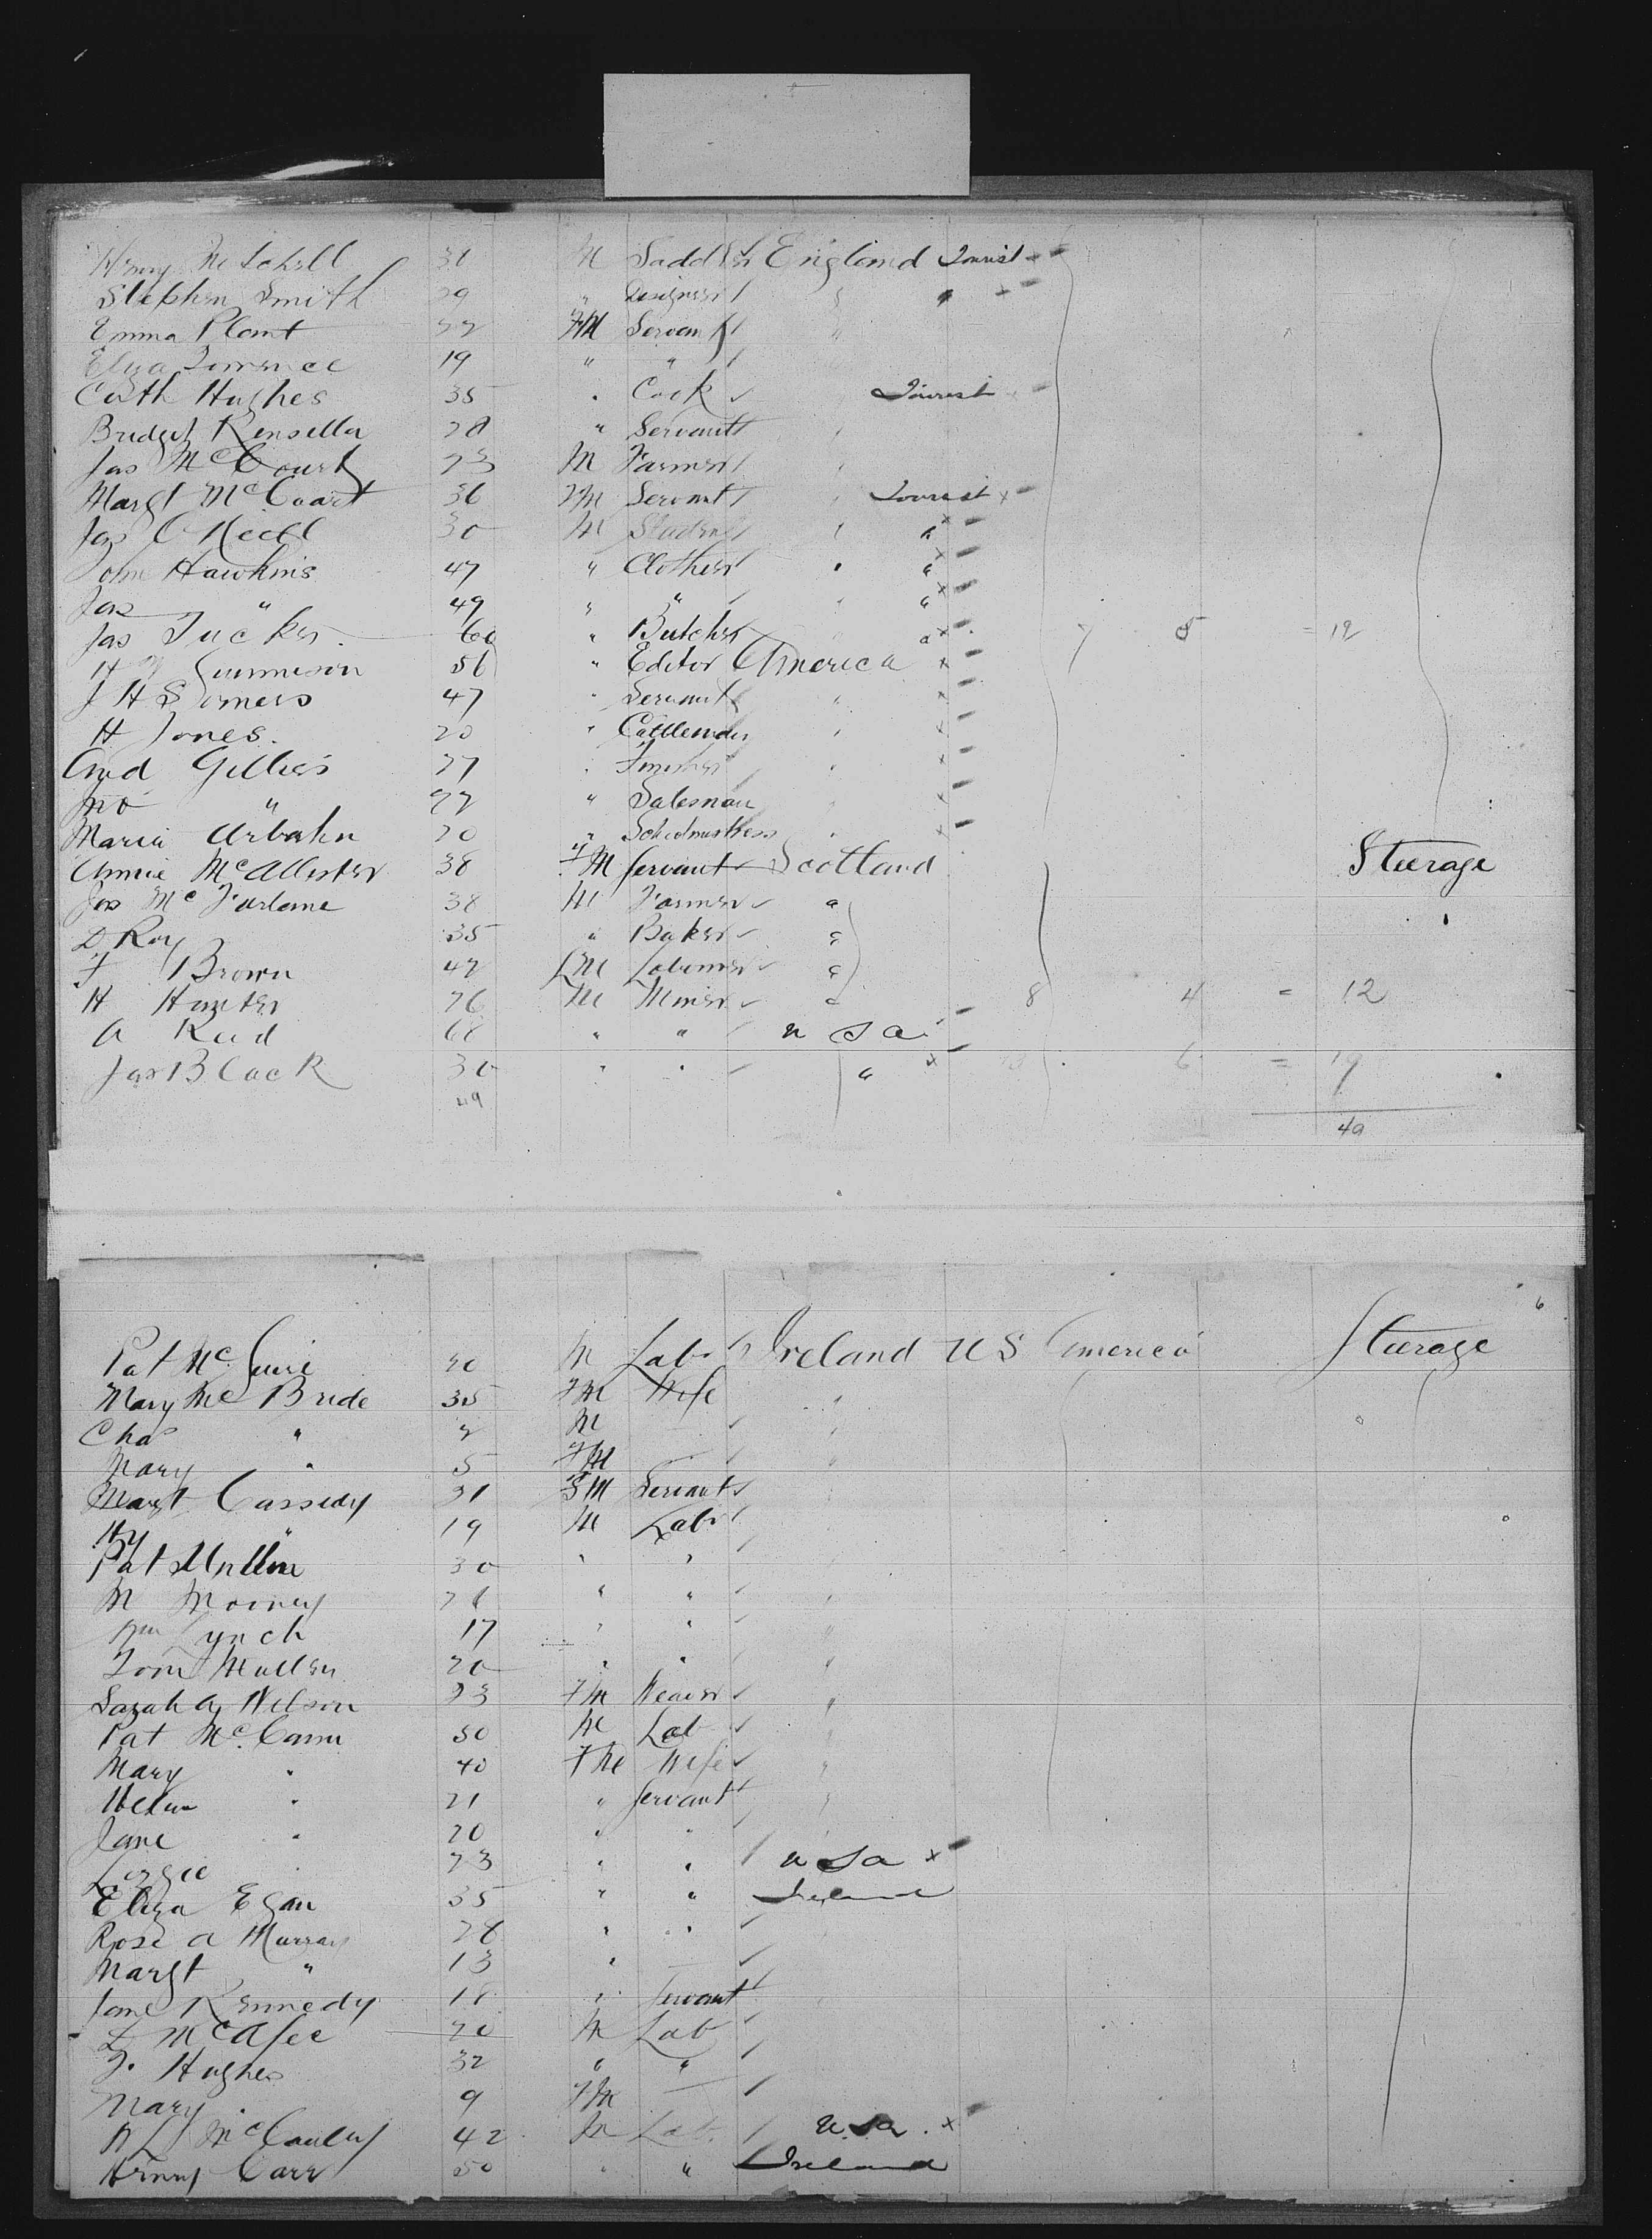 Henry Mitchell 31 M Saddler England Tourist
Stephen Smith 29 " Designer " "
Emma Plant 22 FM Servant "
Eliza Torrence 19 " "
Cath Hughes 35 " Cook Tourist
Bridget Kensella 28 " Servant
Jas McCourt 23 M Farmer
Margt McCourt 36 FM Servant Tourist x
Jas O Neill 30 M Student " " x
John Hawkins 47 " Clothier " " x
Jas " 49 " " " " x
Jas Tucker 60 " Butcher " x 7 5 = 12
H Gunnison 56 " Editor America x
J H Somers 47 " Servant " x
H Jones. 20 " Cattleman " x
And Gillies 27 "
" 22 " Salesman x
Maria Urbahn 20 " Schoolmistress " x
Annie McAllister 38 FM Servant Scotland Steerage
Jas McFarlane 38 M Farmer "
D Roy 35 " Baker "
F Brown 42 M Labourer "
H Hunter 26 M Miner " 8 4 = 12
A Reid 68 " " U S A
Jas Black 30 " " " x 13 6 = 19
49
49
6
Pat McGuire 20 M Labr Ireland U S America Steerage
Mary McBride 35 FM Wife "
Chas " 2 M "
Mary " 5 FM "
Margt Cassidy 31 FM Servant "
Hy " 19 M Labr
Pat Mullin 30 " "
M Mooney 21 " " "
Wm Lynch 17 " " "
Tom Mullen 20 " " "
Sarah A Wilson 23 FM Weaver "
Pat McCann 50 M Lab "
Mary " 40 FM Wife "
Helen " 21 " Servant "
Jane " 20 " "
Lizzie " 23 " " U S A x
Eliza Egan 35 " " Ireland
Rose A Murray 28 " "
Margt " 13 "
Jane Kennedy 18 " Servant
D McAfee 20 M Lab
J. Hughes 32 " "
Mary 9 FM
McCauley 42 M Lab. U.S.A. x
Henry Carr 50 " " Ireland